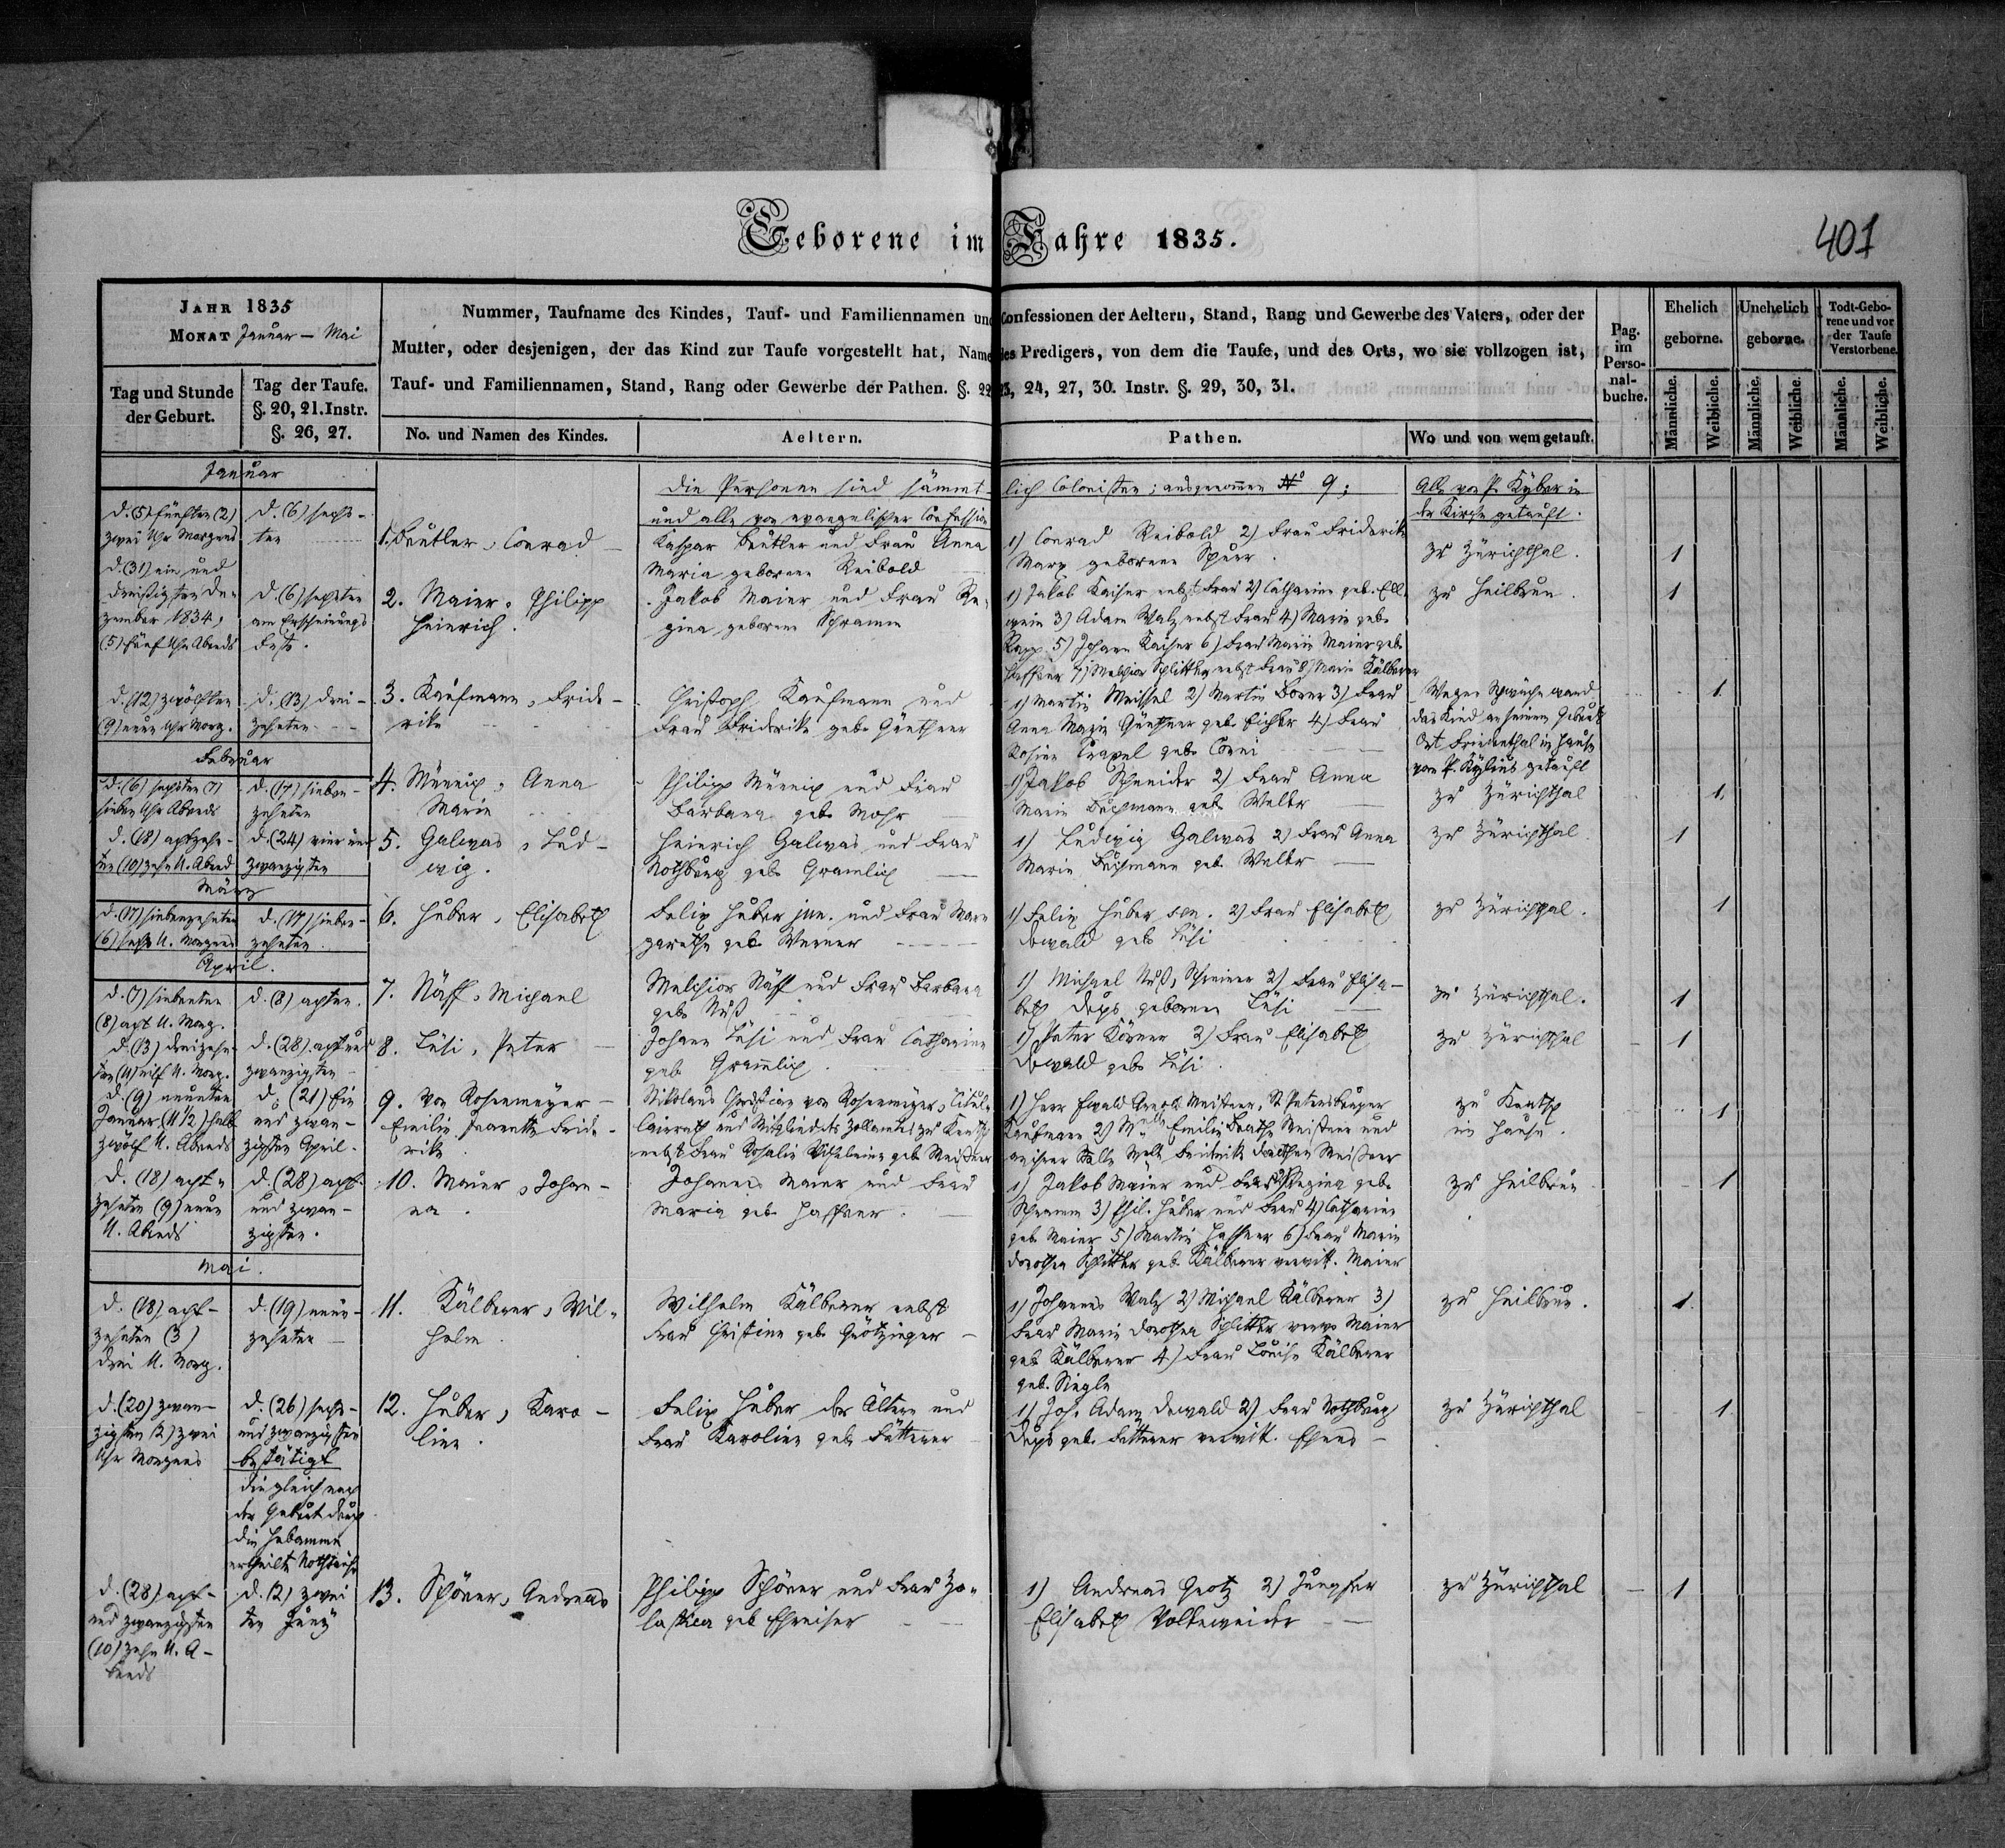 Geborene im Jahre 1835.
401
JAHR 1835
MONAT Januar – Mai
Tag und Stunde der Geburt.
Tag der Taufe. §. 20, 21. Instr. §. 26, 27.
Nummer, Taufname des Kindes, Tauf- und Familiennamen und Confessionen der Aeltern, Stand, Rang und Gewerbe des Vaters, oder der
Mutter, oder desjenigen, der das Kind zur Taufe vorgestellt hat, Name des Predigers, von dem die Taufe, und des Orts, wo sie vollzogen ist,
Tauf- und Familiennamen, Stand, Rang oder Gewerbe der Pathen. §. 22, 23, 24, 27, 30. Instr. §. 29, 30, 31.
No. und Namen des Kindes.
Aeltern.
Pathen.
Wo und von wem getauft.
Pag. im Perso-nal-buche.
Ehelich geborne.
Unehelich geborne.
Todt-Gebo-rene und vor der Taufe Verstorbene.
Männliche.
Weibliche.
Männliche.
Weibliche.
Männliche.
Weibliche.
Januar
Die Personen sind sämmt-lich Colonisten; ausgenommen No 9;
und alle von evangelischer Confession
Alle von P. Kyber in
der Kirche getauft.
d. (5) fünften (2)
zwei Uhr Morgens
d. (6) sechs-
ten
1. Beutler, Conrad
Kaspar Beutler und Frau Anna
Maria geborene Reibold
1) Conrad Reibold 2) Frau Friderike
Marx geborene Spurr.
zu Zürichthal.
1
d. (31) ein und
dreißigsten De-
zember 1834,
(5) fünf Uhr Abends
d. (6) sechsten
am Erscheinungs
Feste.
2. Maier, Philipp
Heinrich.
Jakob Maier und Frau Re-
gina geborene Schramm
1) Jakob Kaiser nebst Frau 2) Catharina geb. Ell-
wein 3) Adam Walz nebst Frau 4) Marie geb.
Rapp 5) Johann Kaiser 6) Frau Marie Maier geb.
Haffner 7) Melchior Schlitter nebst Frau 8) Marie Kälberer
zu Heilbrun.
1
d. (12) zwölften
(9) neun Uhr Morg.
d. (13) drei-
zehnten
3. Kaufmann, Fride-
rike
Christoph Kaufmann und
Frau Friderike geb. Günthner
1) Martin Meissel 2) Martin Dorer 3) Frau
Anna Marie Günthner geb. Eichler 4) Frau
Rosine geb.
Wegen Schwäche ward
das Kind an seinem Geburts
Ort Friedenthal im Hause
von P. Kylius getauft
1
Februar
d. (6) sechsten (7)
sieben Uhr Abends
d. (17) sieben-
zehnten
4. Münnich, Anna
Marie
Philipp Münnich und Frau
Barbara geb. Mohr
1) Jakob Schneider 2) Frau Anna
Marie Buchmann geb. Welter
zu Zürichthal
1
d. (18) achtzehn-
ten (10) zehn U. Abend
d. (24) vier und
zwanzigsten
5. Galwas, Lud-
wig.
Heinrich Galwas und Frau
Nothburg geb. Gramlich
1) Ludwig Galwas 2) Frau Anna
Marie Buchmann geb. Welter
zu Zürichthal
1
März
d. (17) siebenzehnten
(6) sechs U. Morgens
d. (17) sieben-
zehnten
6. Huber, Elisabeth
Felix Huber jun. und Frau Mar-
garetha geb. Werner
1) Felix Huber sen. 2) Frau Elisabeth
Dewald geb. Lüsi
zu Zürichthal.
1
April.
d. (7) siebenten
(8) acht U. Morg.
d. (8) achten.
7. Näff, Michael
Melchior Näff und Frau Barbara
geb. Nuß
1) Michael Nuß, Schreiner 2) Frau Elisa-
beth Deps geborene Lüsi
zu Zürichthal.
1
d. (13) dreizehn-
ten (11) eilf U. Morg.
d. (28) acht und
zwanzigsten
8. Lüsi, Peter
Johann Lüsi und Frau Catharina
geb. Gramlich.
1) Peter Körner 2) Frau Elisabeth
Dewald geb. Lüsi.
zu Zürichthal
1
d. (9) neunten
Januar (11 1/2) halb
zwölf U. Abends
d. (21) Ein
und zwan-
zigsten April.
9. von Rosenmeyer
Emilie Jeanette Fride-
rike
Nikolaus Christian von Rosenmeyer, Titul-
lairrath und Mitglied des Zollamtes zu Kertsch
nebst Frau Rosalie Wilhelmine geb. Meißner
1) Herr Ewald Arnold Meißner, St. Petersburger
Kaufmann 2) Mlle Emilie Meißner und
an ihrer Stelle Mlle Friderike Dorothea Meißner
zu Kertsch
im Hause.
1
d. (18) acht-
zehnten (9) neun
U. Abends
d. (28) acht
und zwan-
zigsten.
10. Maier, Johan-
na.
Johannes Maier und Frau
Maria geb. Haffner.
1) Jakob Maier und Frau 2) Regina geb.
Schramm 3) Phil. Huber und Frau 4) Catharina
geb. Maier 5) Martin Haffner 6) Frau Marie
Dorothea Schlitter geb. Kälberer verwitt. Maier
zu Heilbrun
1
Mai.
d. (18) acht-
zehnten (3)
drei U. Morg.
d. (19) neun-
zehnten
11. Kälberer, Wil-
helm
Wilhelm Kälberer nebst
Frau Christine geb. Grötzinger
1) Johannes Walz 2) Michael Kälberer 3)
Frau Marie Dorothea Schlitter Maier
geb. Kälberer 4) Frau Louise Kälberer
geb. Siegle
zu Heilbrun.
1
d. (20) zwan-
zigsten (2) zwei
Uhr Morgens
d. (26) sechs-
und zwanzigsten
bestätigt
die gleich nach
der Geburt durch
die Hebamme
ertheilte Nothtaufe
12. Huber, Karo-
line.
Felix Huber der Ältere und
Frau Karoline geb. Fetterer
1) Joh. Adam Dewald 2) Frau Nothburg
Deps geb. Fetterer verwitt.
zu Zürichthal
1
d. (28) acht-
und zwanzigsten
(10) zehn U. A-
bends
d. (2) zwei
ten Juny
13. Schöner, Andreas
Philipp Schöner und Frau
geb.
1) Andreas Grotz 2) Jungfer
Elisabeth Volkenweider
zu Zürichthal
1